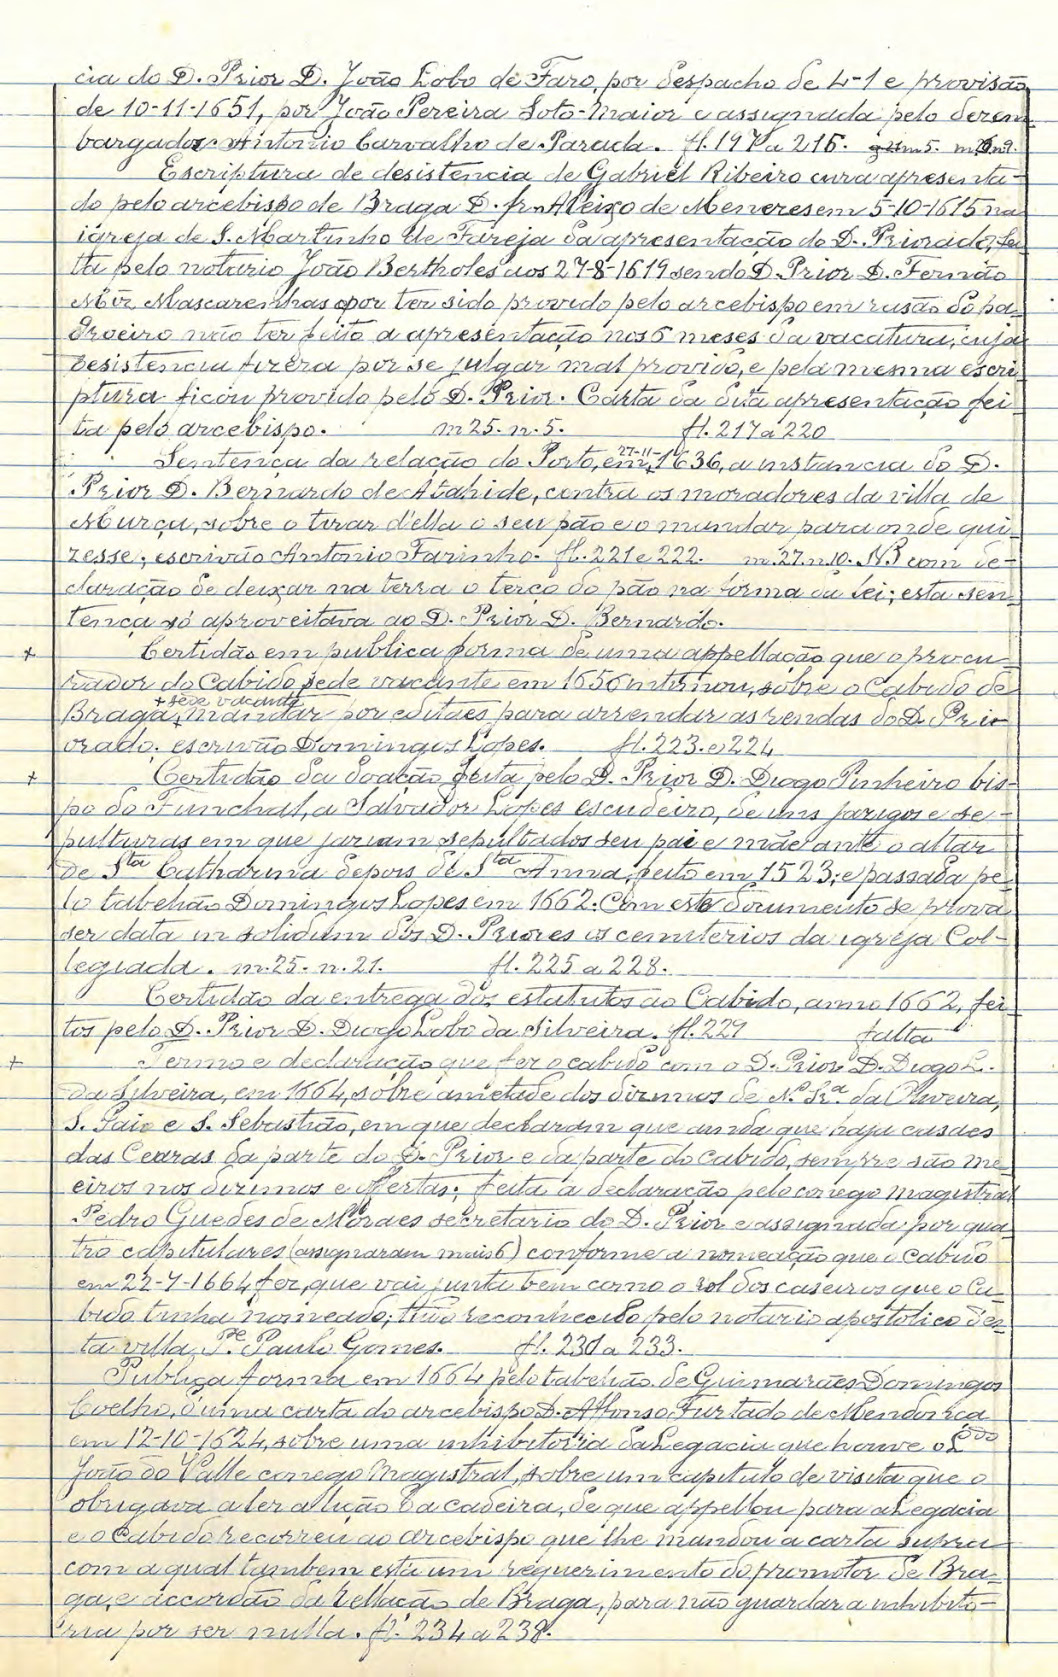 cia do D. Prior D. João Lobo de Faro, por despacho de 4-1 e provisão
de 10-11-1651, por João Pereira Soto-Maior e assignada pelo desem
bargador Antonio Carvalho de Parada. fl. 197 a 216. m. n. 9.
Escriptura de desistencia de Gabriel Ribeiro cura apresenta-
do pelo arcebispo de Braga D. fr. Aleixo de Meneres em 5-10-1615 na
igreja de S. Martinho de Fareja da apresentação do D. Priorado, fei
ta pelo notario João Bertholes aos 27-8-1619 sendo D. Prior D. Fernão
Miz Mascarenhas por ter sido provido pelo arcebispo em rasão do pa-
droeiro não ter feito a apresentação nos 6 meses da vacatura, cuja
desistencia fizera por se julgar mal provido, e pela mesma escri
ptura ficou provido pelo D. Prior. Carta da dita apresentação fei
ta pelo arcebispo. m 25. n. 5. fl. 217 a 220
Sentença da relação do Porto, em 27-11-1636, a instancia do D.
Prior D. Bernardo de Atahide, contra os moradores da villa de
Murça, sobre o tirar d'ella o seu pão e o mandar para onde qui
zesse; escrivão Antonio Farinho. fl. 221 e 222. m. 27. n. 10. NB com de-
claração de deixar na terra o terço do pão na forma da lei; esta sen
tença só aproveitava ao D. Prior D. Bernardo.
+ Certidão em publica forma de uma appellação que o procu-
rador do Cabido sede vacante em 1656 intimou, sobre o Cabido de
Braga, + sede vacante mandar por editaes para arrendar as rendas do D. Pri-
orado. escrivão Domingos Lopes. fl. 223. e 224
+ Certidão da doação feita pelo D. Prior D. Diogo Pinheiro bis-
po do Funchal, a Salvador Lopes escudeiro, de uns jazigos e se-
pulturas em que jaziam sepultados seu pai e mãe ante o altar
de Sta Catharina depois de Sta Anna, feito em 1523; e passada pe-
lo tabelião Domingos Lopes em 1662. Com este documento se prova
ser data in solidum dos D. Priores os cemiterios da igreja Col-
legiada. m. 25. n. 21. fl. 225 a 228.
Certidão da entrega dos estatutos ao Cabido, anno 1662, fei-
tos pelo D. Prior D. Diogo Lobo da Silveira. fl. 229 falta
+ Termo e declaração que fez o cabido com o D. Prior D. Diogo L.
da Silveira, em 1664, sobre ametade dos dizimos de N. Sra da Oliveira,
S. Paio e S. Sebastião, em que declaram que ainda que haja casaes
das Cearas da parte do D. Prior e da parte do Cabido, sempre são me-
eiros nos dizimos e offertas; feita a declaração pelo conego magistral
Pedro Guedes de Moraes secretario do D. Prior e assignada por qua
tro capitulares (assignaram mais 6) conforme a nomeação que o Cabido
em 22-7-1664 fez, que vai junta bem como o rol dos caseiros que o Ca-
bido tinha nomeado; tudo reconhecido pelo notario apostolico des-
ta villa Pe Paulo Gomes. fl. 230 a 233.
Publica forma em 1664 pelo tabelião de Guimarães Domingos
Coelho, d'uma carta do arcebispo D. Affonso Furtado de Mendonça
em 12-10-1624, sobre uma inhibitoria da Legacia que houve o Ldo
João do Valle conego magistral, sobre um capitulo de visita que o
obrigava a ler a lição da cadeira, de que appellou para a Legacia
e o Cabido recorreu ao arcebispo que lhe mandou a carta supra
com a qual tambem está um requerimento do promotor de Bra-
ga, e accordão da Rellação de Braga, para não guardar a inhibito-
ria por ser nulla. fl. 234 a 238.